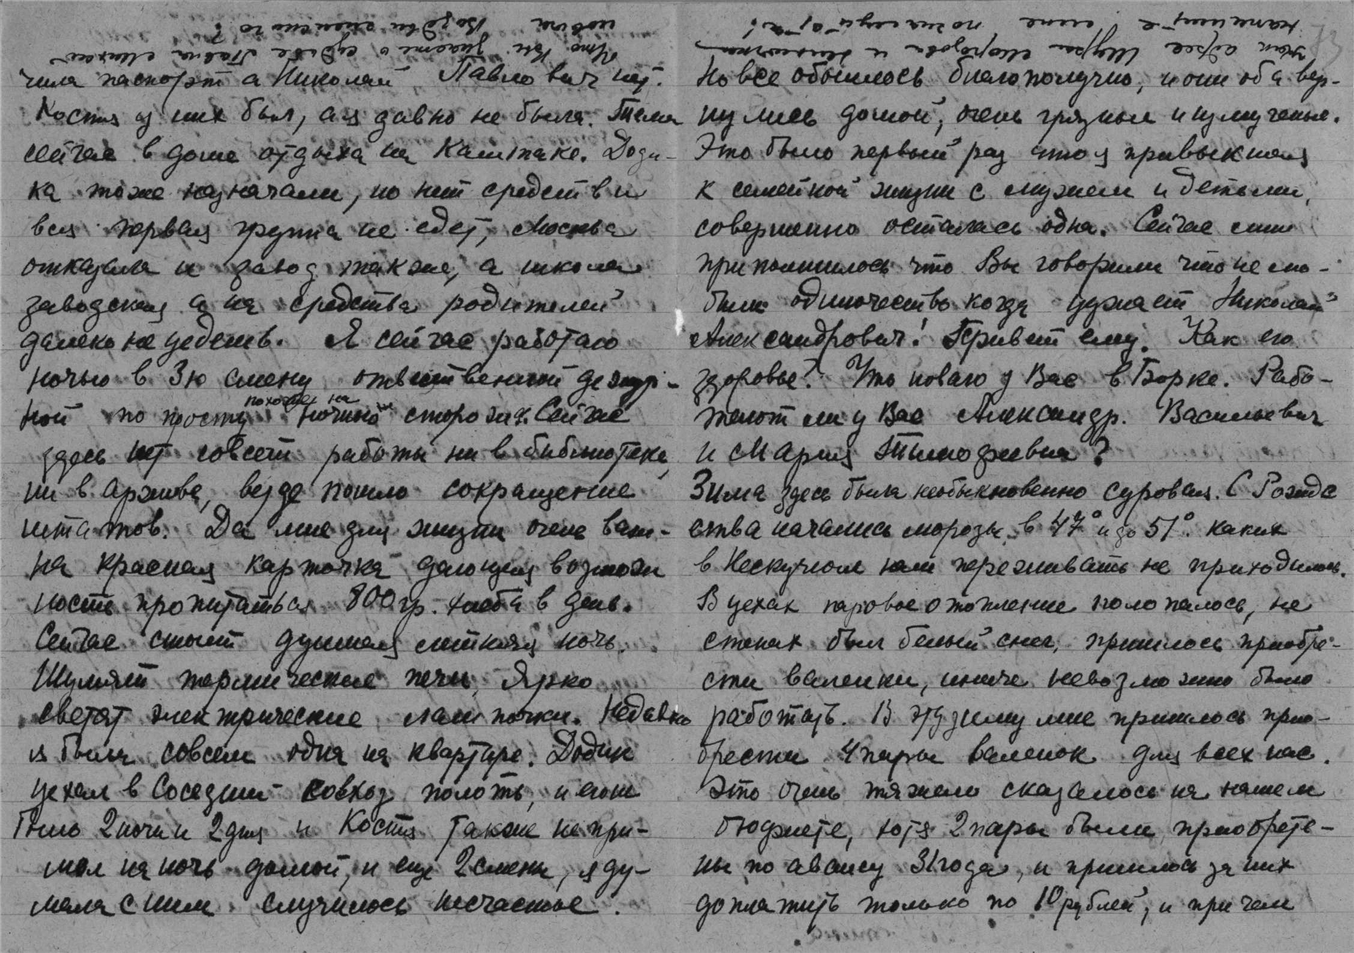 чила паспорт а Николай Павлович нет.
Костя у них был, а я давно не была. Тема
сейчас в доме отдыха на Каштаке. Доди-
ка тоже назначали, но нет средств и
вся первая группа не едет, Москва
отказала и завод также, а школа
заводская а на средства родителей
далеко не уедешь. Я сейчас работаю
ночью в 3ю смену ответственной дежур-
ной по просту похожая на ночной сторожих. Сейчас
здесь нет совсем работы ни в библиотеке,
ни в архиве, везде пошло сокращение
штатов. Да мне для жизни очень важ-
на красная карточка дающая возмож
ность пропитаться 800 гр. хлеба в день.
Сейчас стоит душная летняя ночь.
Шумят термические печи, Ярко
светят электрические лампочки. Недавно
я была совсем одна на квартире. Додик
уехал в Соседний совхоз полоть, и его не
было 2 ночи и 2 дня и Костя также не при-
шел на ночь домой, и еще 2 смены, я ду-
мала с ним случилось несчастье.
Что Вы знаете о судьбе Павла
Но все обошлось благополучно, и они оба вер-
нулись домой, очень грязные и измученные.
Это было первый раз что я привыкшая
к семейной жизни с мужем и детьми,
совершенно осталась одна. Сейчас мне
припомнилось что Вы говорили что не лю-
били одиночество когда уезжает Николай
Александрович! Привет ему. Как его
здоровье? Что нового у Вас в Борке. Рабо-
тают ли у Вас Александр. Васильевич
и Мария Тимофеевна?
Зима здесь была необыкновенно суровая. С Рожде
ства начались морозы в 47° и до 51° каких
в Нескучном нам переживать не приходилось.
В цехах паровое отопление полопалось, на
стенах был белый снег, пришлось приобре-
сти валенки, иначе невозможно было
работать. В эту зиму мне пришлось прио-
брести 4 пары валенок для всех нас.
Это очень тяжело сказалось на нашем
бюджете, хотя 2 пары были приобрете-
ны по авансу 31 года, и пришлось за них
доплатить только по 10 рублей, и при чем